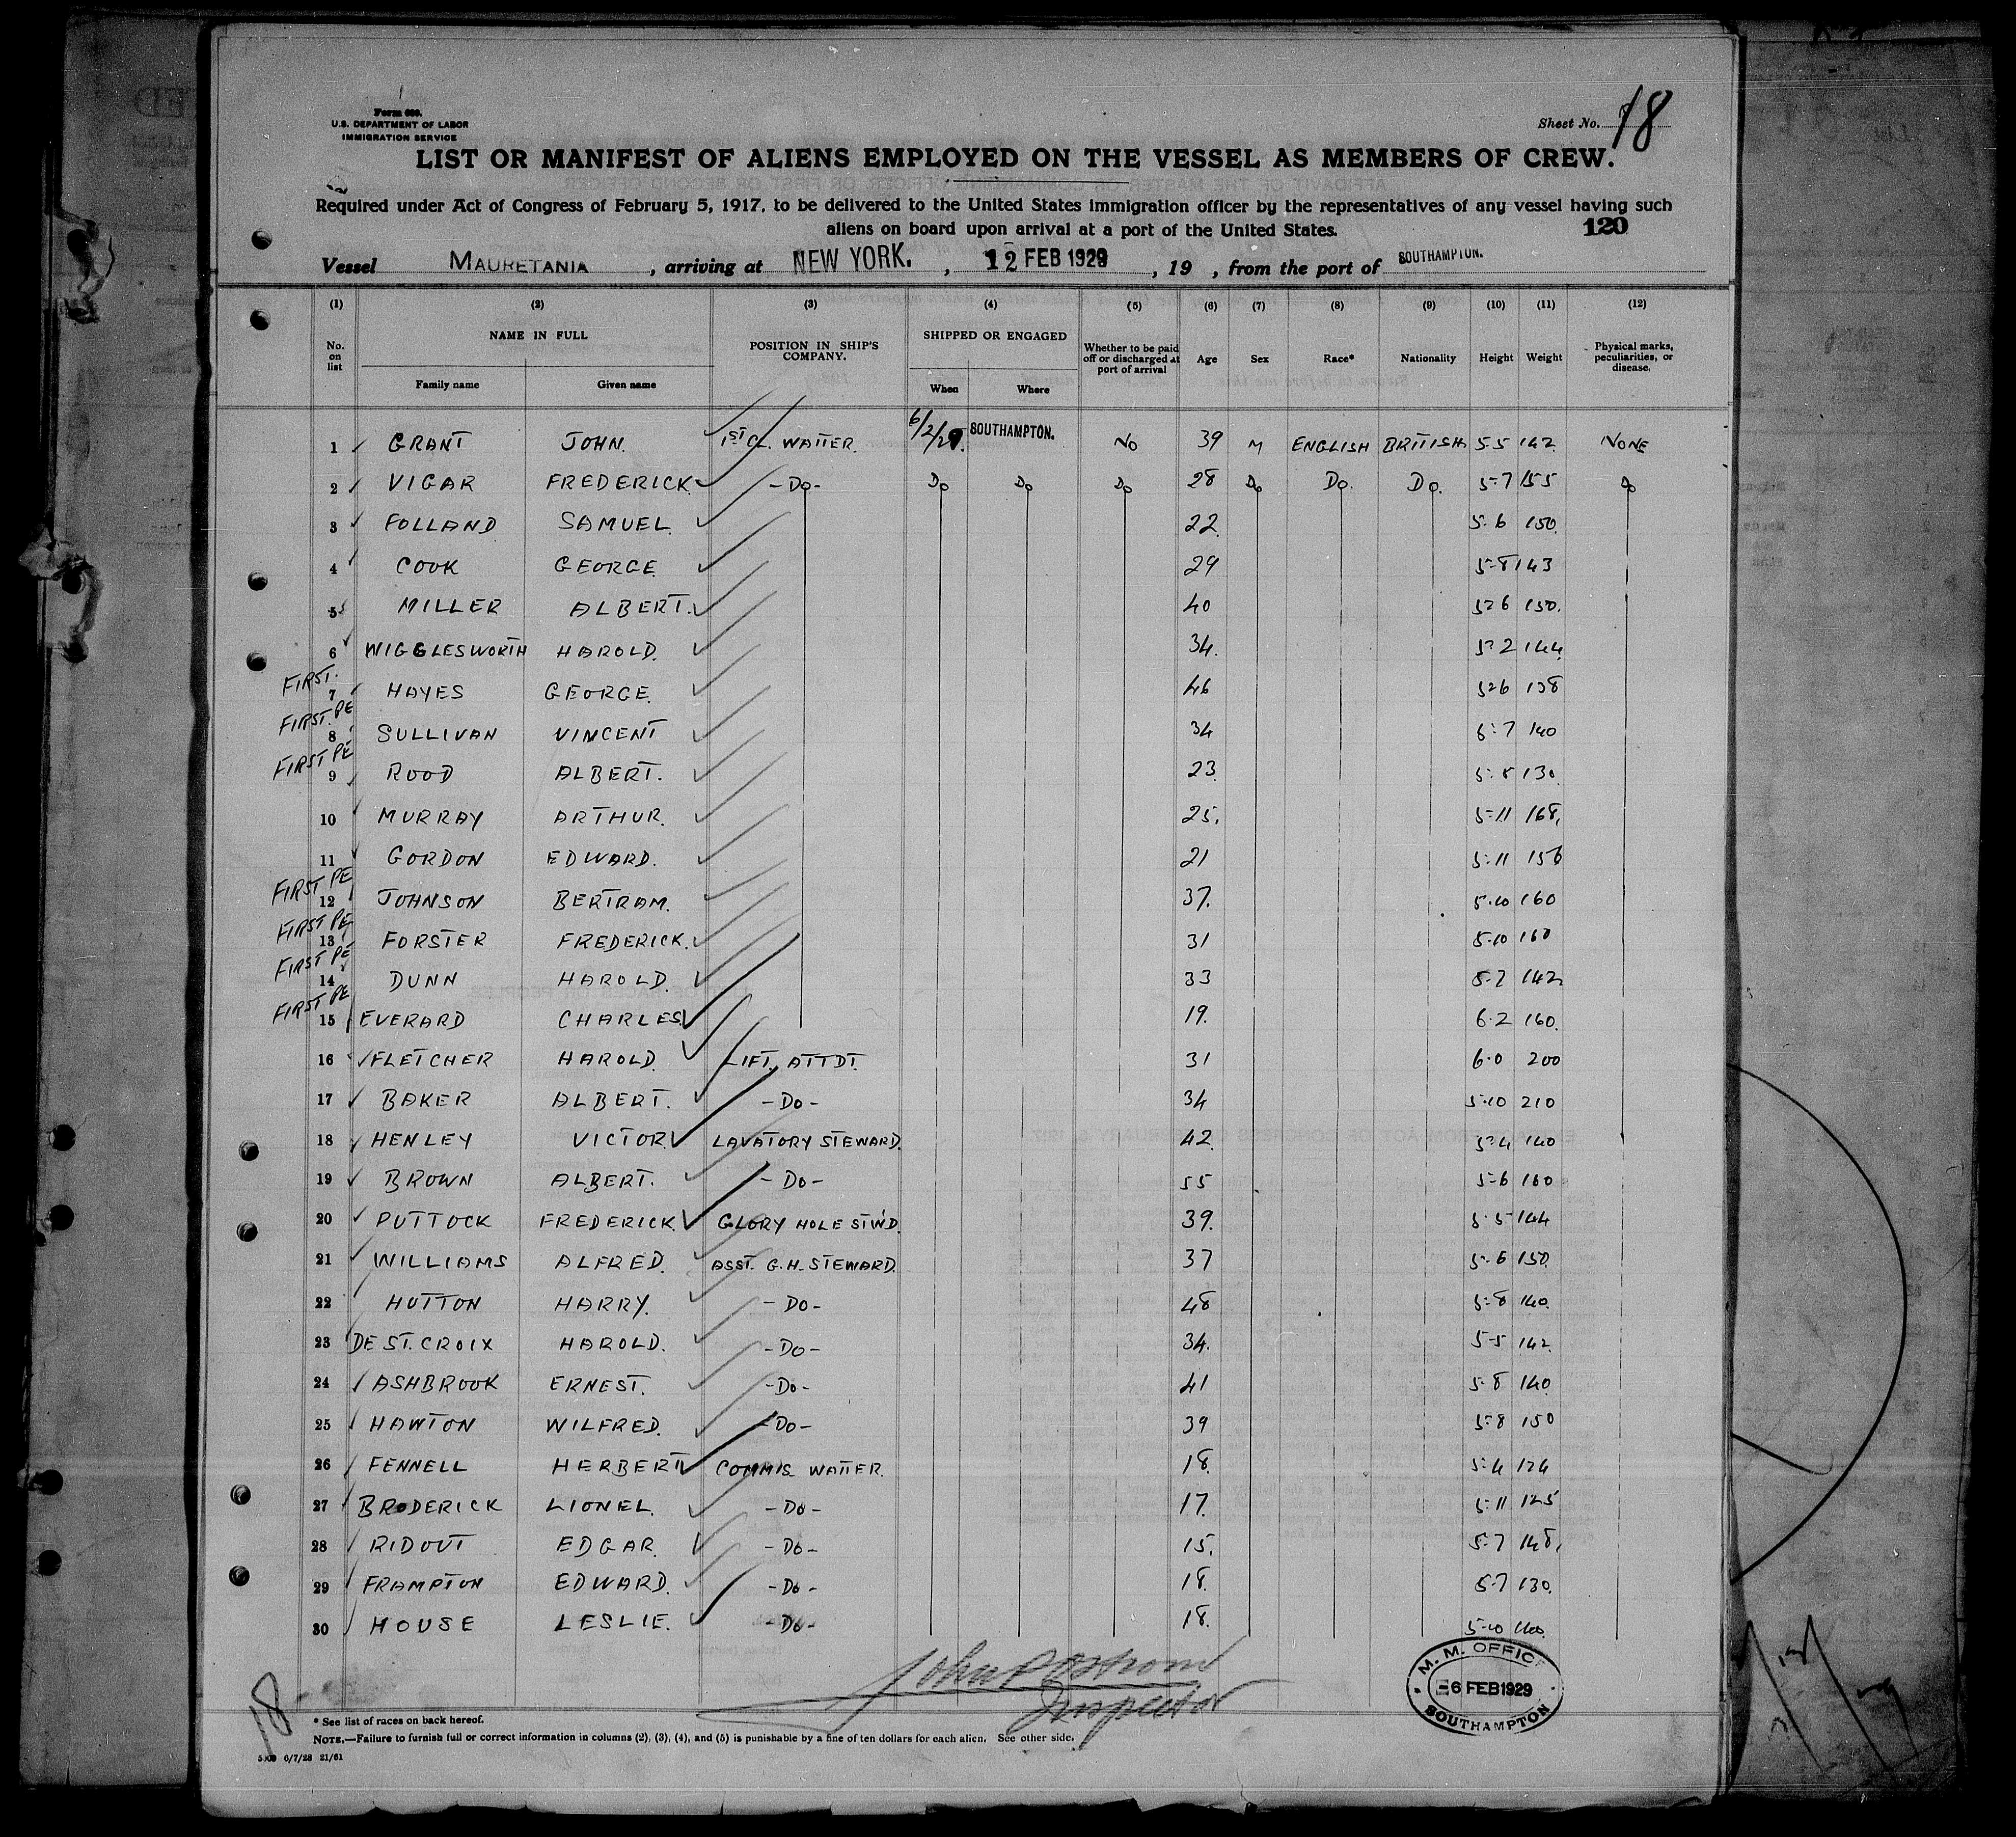 Form 680.
U.S. DEPARTMENT OF LABOR
IMMIGRATION SERVICE
Sheet No. 18
LIST OR MANIFEST OF ALIENS EMPLOYED ON THE VESSEL AS MEMBERS OF CREW.
Required under Act of Congress of February 5, 1917, to be delivered to the United States immigration officer by the representatives of any vessel having such
aliens on board upon arrival at a port of the United States.
120
Vessel MAURETANIA , arriving at NEW YORK. , 12 FEB 1929 , 19 , from the port of SOUTHAMPTON.
(1) (2) (3) (4) (5) (6) (7) (8) (9) (10) (11) (12)
No. on list NAME IN FULL Family name Given name POSITION IN SHIP'S COMPANY. SHIPPED OR ENGAGED When Where Whether to be paid off or discharged at port of arrival Age Sex Race* Nationality Height Weight Physical marks, peculiarities, or disease.
1 GRANT JOHN. 1ST CL. WAITER. 6/2/29. SOUTHAMPTON. NO 39 M ENGLISH BRITISH 5-5 142 NONE
2 VIGAR FREDERICK -Do- Do Do Do 28 Do Do. Do. 5-7 155 Do
3 FOLLAND SAMUEL 22. 5-6 150.
4 COOK GEORGE 29 5-8 143
5 MILLER ALBERT. 40 5-6 150.
6 WIGGLESWORTH HAROLD. 34. 5-2 144
FIRST. 7 HAYES GEORGE. 46 5-6 138
FIRST. PE 8 SULLIVAN VINCENT 34 5-7 140
FIRST PE 9 ROOD ALBERT. 23. 5-8 130
10 MURRAY ARTHUR. 25. 5-11 168.
11 GORDON EDWARD. 21 5-11 156
FIRST PE 12 JOHNSON BERTRAM. 37. 5-10 160
FIRST PE 13 FORSTER FREDERICK. 31 5-10 160
FIRST PE 14 DUNN HAROLD. 33 5-7 142
FIRST PE 15 EVERARD CHARLES 19. 6-2 160.
16 FLETCHER HAROLD. LIFT. ATTDT. 31 6-0 200
17 BAKER ALBERT. -Do- 34 5-10 210
18 HENLEY VICTOR. LAVATORY STEWARD. 42. 5-4 140
19 BROWN ALBERT. -Do- 55 5-6 160
20 PUTTOCK FREDERICK. GLORY HOLE STWD. 39. 5-5 144
21 WILLIAMS ALFRED. ASST. G.H. STEWARD. 37 5-6 150.
22 HUTTON HARRY. -Do- 48 5-8 140.
23 DE ST. CROIX HAROLD. -Do- 34. 5-5 142.
24 ASHBROOK ERNEST. -Do- 41 5-8 140
25 HAWTON WILFRED. -Do- 39 5-8 150
26 FENNELL HERBERT COMMIS WAITER. 18. 5-4 124
27 BRODERICK LIONEL. -Do- 17. 5-11 125
28 RIDOUT EDGAR. -Do- 15. 5-7 148.
29 FRAMPTON EDWARD. -Do- 18. 5-7 130.
30 HOUSE LESLIE. -Do- 18. 5-10 140.
Inspector
M. M. OFFICE
-6 FEB 1929
SOUTHAMPTON
18
* See list of races on back hereof.
NOTE.—Failure to furnish full or correct information in columns (2), (3), (4), and (5) is punishable by a fine of ten dollars for each alien. See other side.
6/7/28 21/61